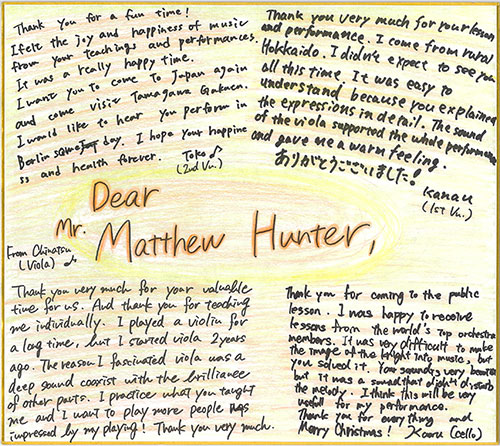 Thank you for a fun time!
I felt the joy and happiness of music
from your teachings and performances.
It was a really happy time.
I want you to come to Japan again
and come visit Tamagawa Gakuen.
I would like to hear you perform in
Berlin someday. I hope your happine
ss and health forever. Toko♪
(2nd Vn.)
Thank you very much for your lesson
and performance. I come from rural
Hokkaido. I didn't expect to see you
all this time. It was easy to
understand because you explained
the expressions in detail. The sound
of the viola supported the whole performance
and gave me a warm feeling.
ありがとうございました!
Kanau
(1st Vn.)
Dear
Mr. Matthew Hunter,
From Chinatsu
(Viola) ♪
Thank you very much for your valuable
time for us. And thank you for teaching
me individually. I played a violin for
a long time, but I started viola 2years
ago. The reason I fascinated viola was a
deep sound coexist with the brilliance
of other parts. I practice what you taught
me and I want to play more people
impressed by my playing! Thank you very much.
Thank you for coming to the public
lesson. I was happy to receive
lessons from the world's top orchestra
members. It was very difficult to make
the image of the bright into music, but
you solved it. You sound is very
but it was a sound that didn't disturb
the melody. I think this will be very
useful for my performance.
Thank you for everything and
Merry Christmas! Kaoru (cello)